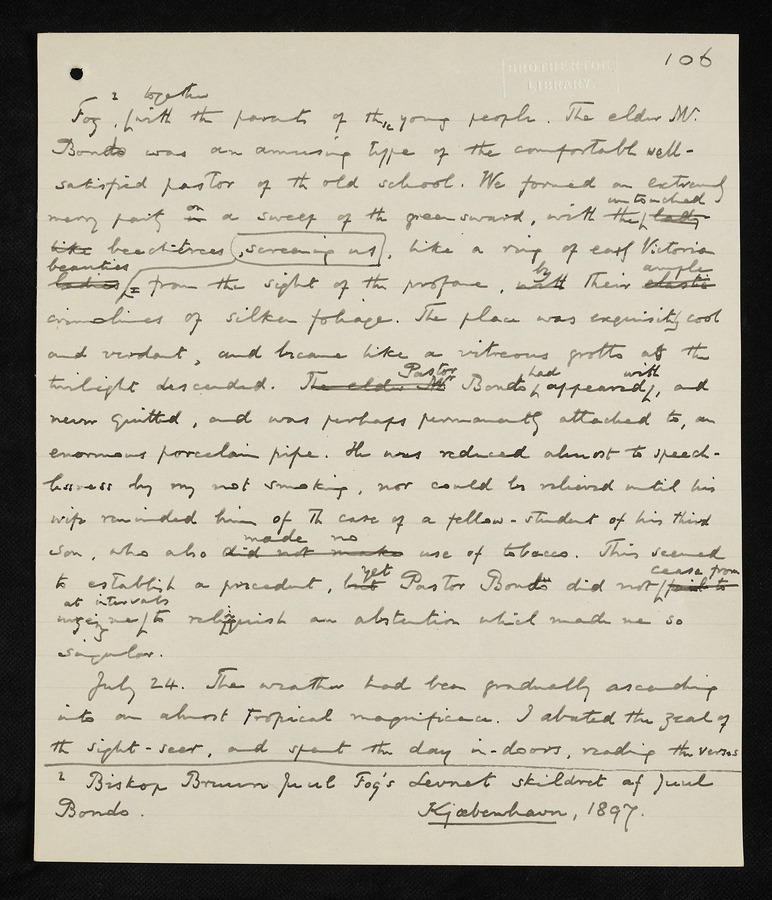 106
BROTHERTON
LIBRARY
2 together
Fog, with the parents of these young people. The elder Mr.
Bondo was an amusing type of the comfortable well-
satisfied pastor of the old school. We formed an extremely
untouched
merry party in on a sweep of the greensward, with the lady
like beech-trees, screening us, like a ring of early Victorian
beauties by ample
ladies, from the sight of the profane, with their elastic
crinolines of silken foliage. The place was exquisitely cool
and verdant, and became like a vitreous grotto as the
Pastor had with
twilight descended. The elder Mr Bondo appeared, and
never quitted, and was perhaps permanently attached to, an
enormous porcelain pipe. He was reduced almost to speech-
lessness by my not smoking, nor could be relieved until his
wife reminded him of the case of a fellow-student of his third
made no
son, who also did not make use of tobacco. This seemed
yet cease from
to establish a precedent, but Pastor Bondo did not fail to
at intervals
urging me to relinquish an abstention which made me so
singular.
July 24. The weather had been gradually ascending
into an almost tropical magnificence. I abated the zeal of
the sight-seer, and spent the day in-doors, reading the verses
2 Biskop Bruun Juul Fog's Levnet skildret af Juul
Bondo. Kjøbenhavn, 1897.